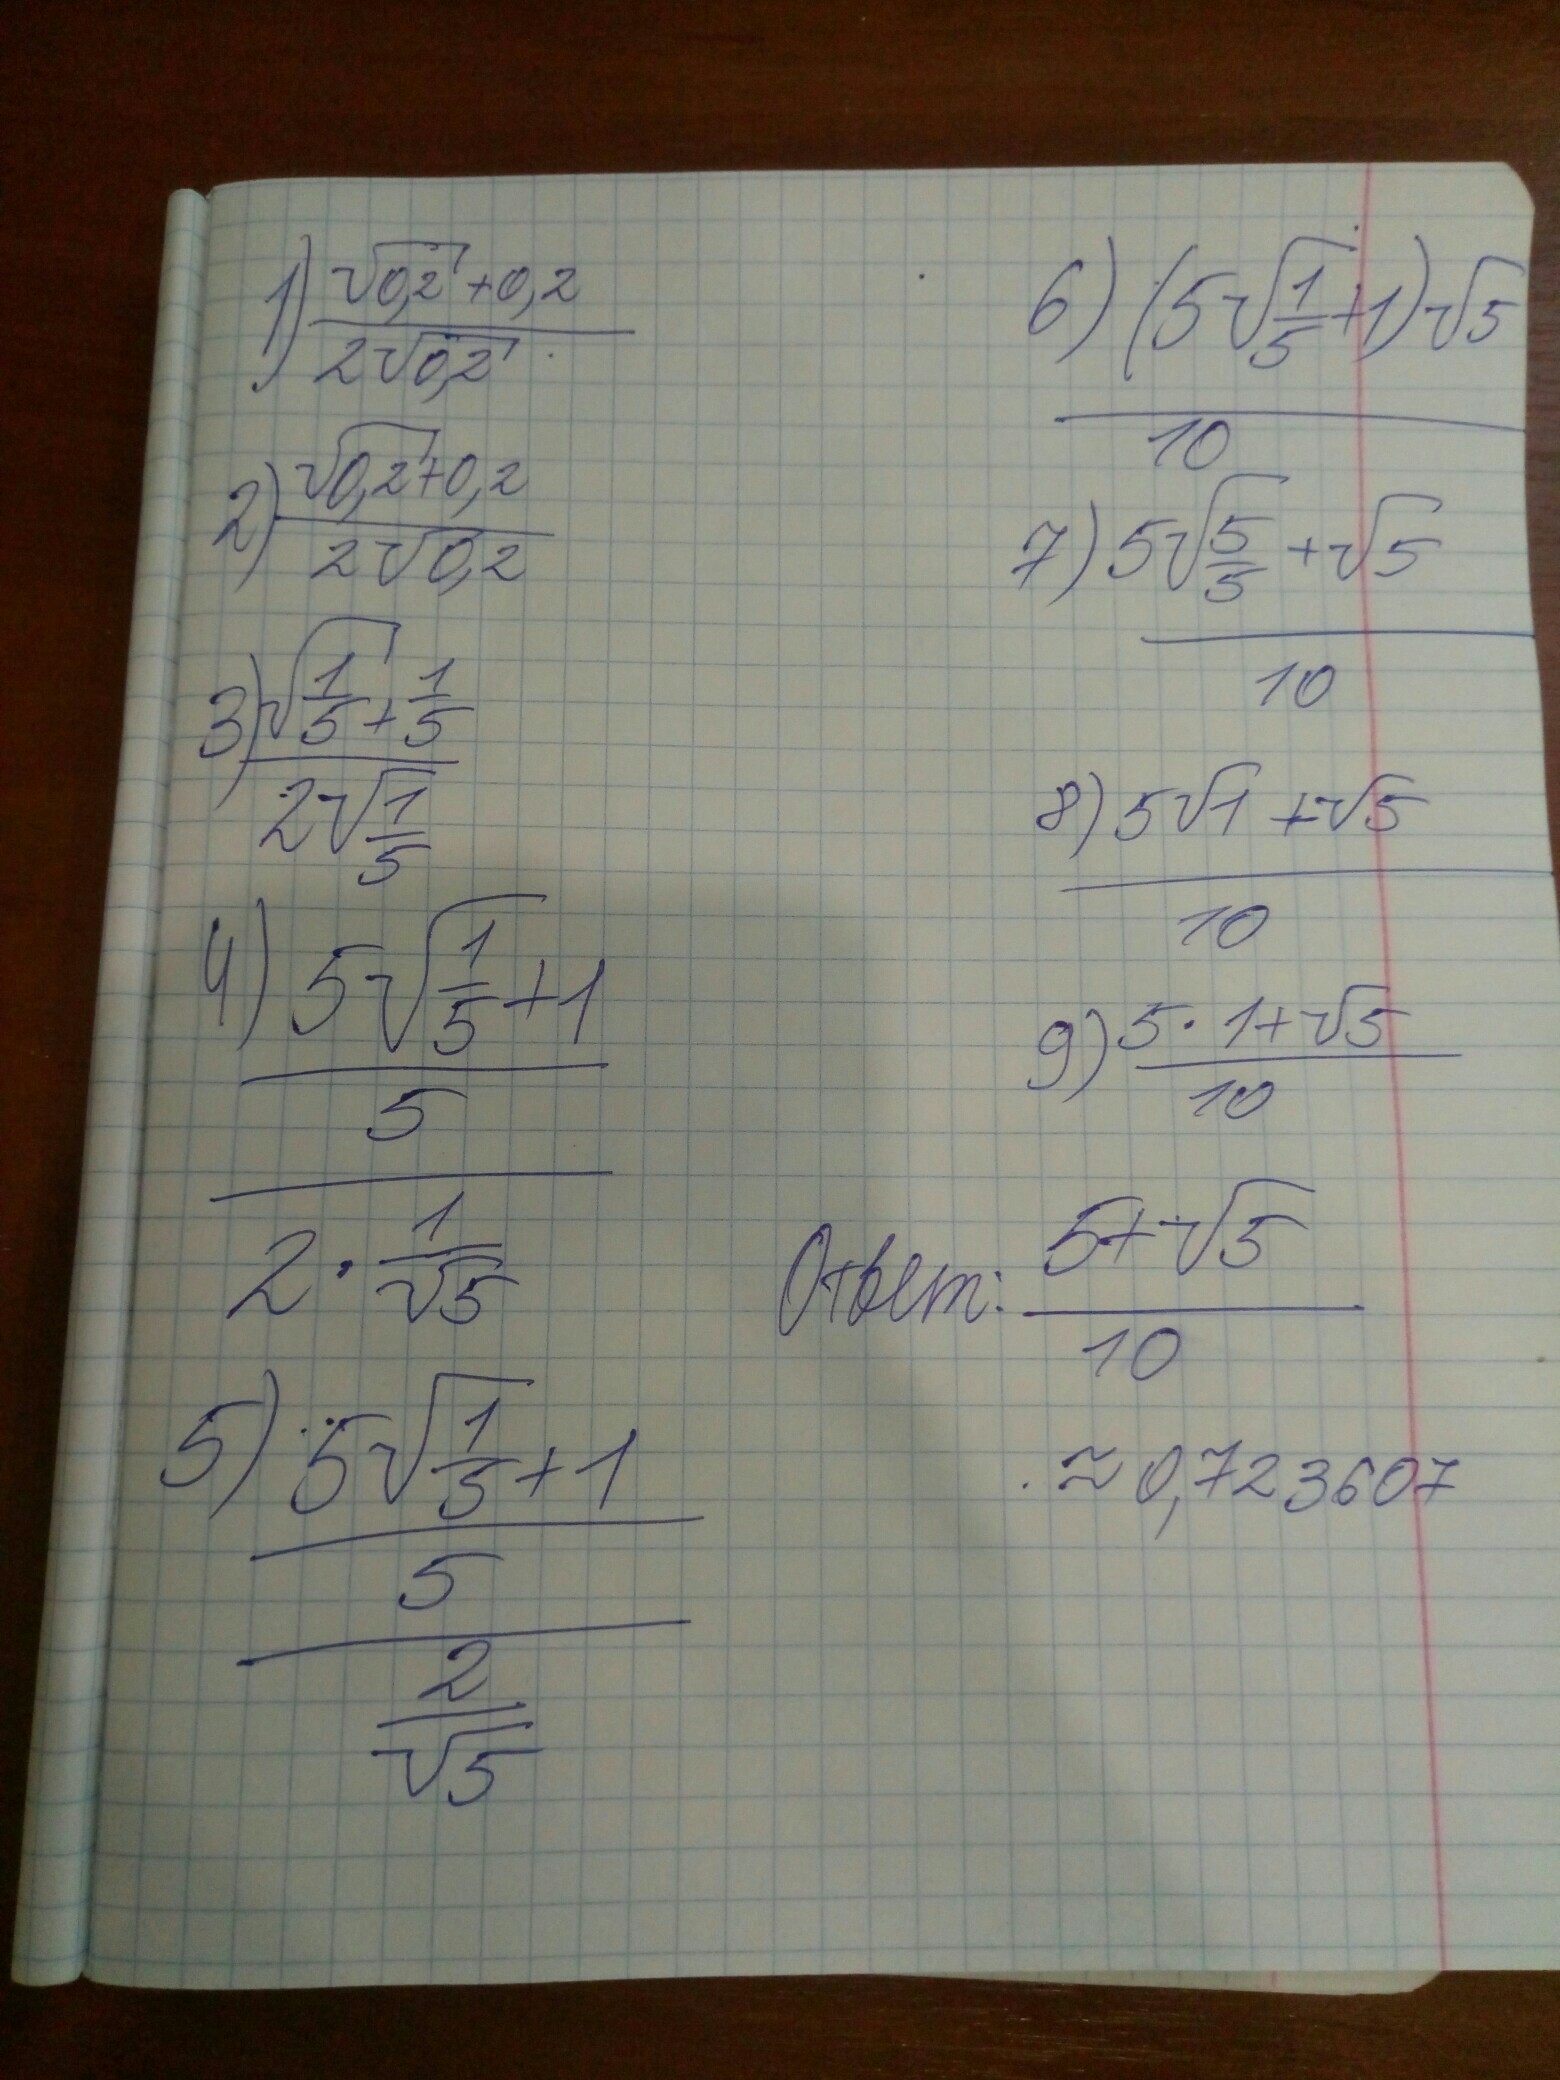 1) (√0,2 + 0,2) / (2√0,2)
2) (√0,2 + 0,2) / (2√0,2)
3) (√(1/5) + 1/5) / (2√(1/5))
4) ((5√(1/5) + 1) / 5) / (2 · 1/√5)
5) ((5√(1/5) + 1) / 5) / (2/√5)
6) (5√(1/5) + 1)√5 / 10
7) (5√(5/5) + √5) / 10
8) (5√1 + √5) / 10
9) (5 · 1 + √5) / 10
Ответ: (5 + √5) / 10
≈ 0,723607